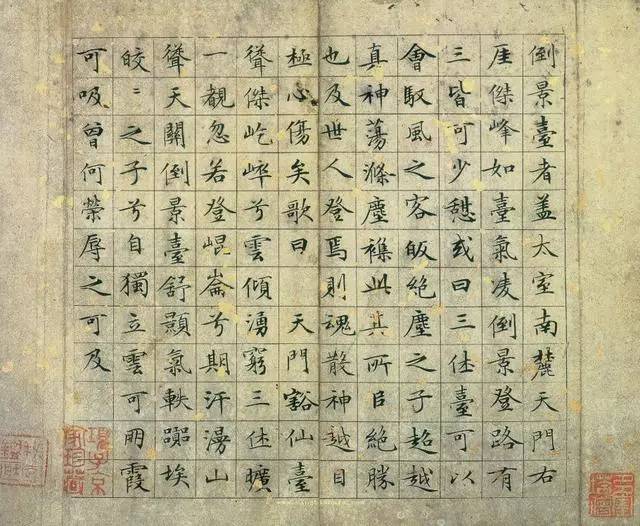 倒景臺者盖太室南麓天門右
厓傑峰如臺氣凌倒景登路有
三皆可少憩或曰三休臺可以
會馭風之客皈絶塵之子超越
真神蕩滌塵襟此其所㠯絶勝
也及世人登焉則魂散神越目
極心傷矣歌曰 天門豁仙臺
聳傑屹崒兮雲傾湧窮三休曠
一覩忽若登崐崙兮期汗漫山
聳天關倒景臺舒顥氣軼埃
皎〻之子兮自獨立雲可朋霞
可吸曾何榮辱之可及